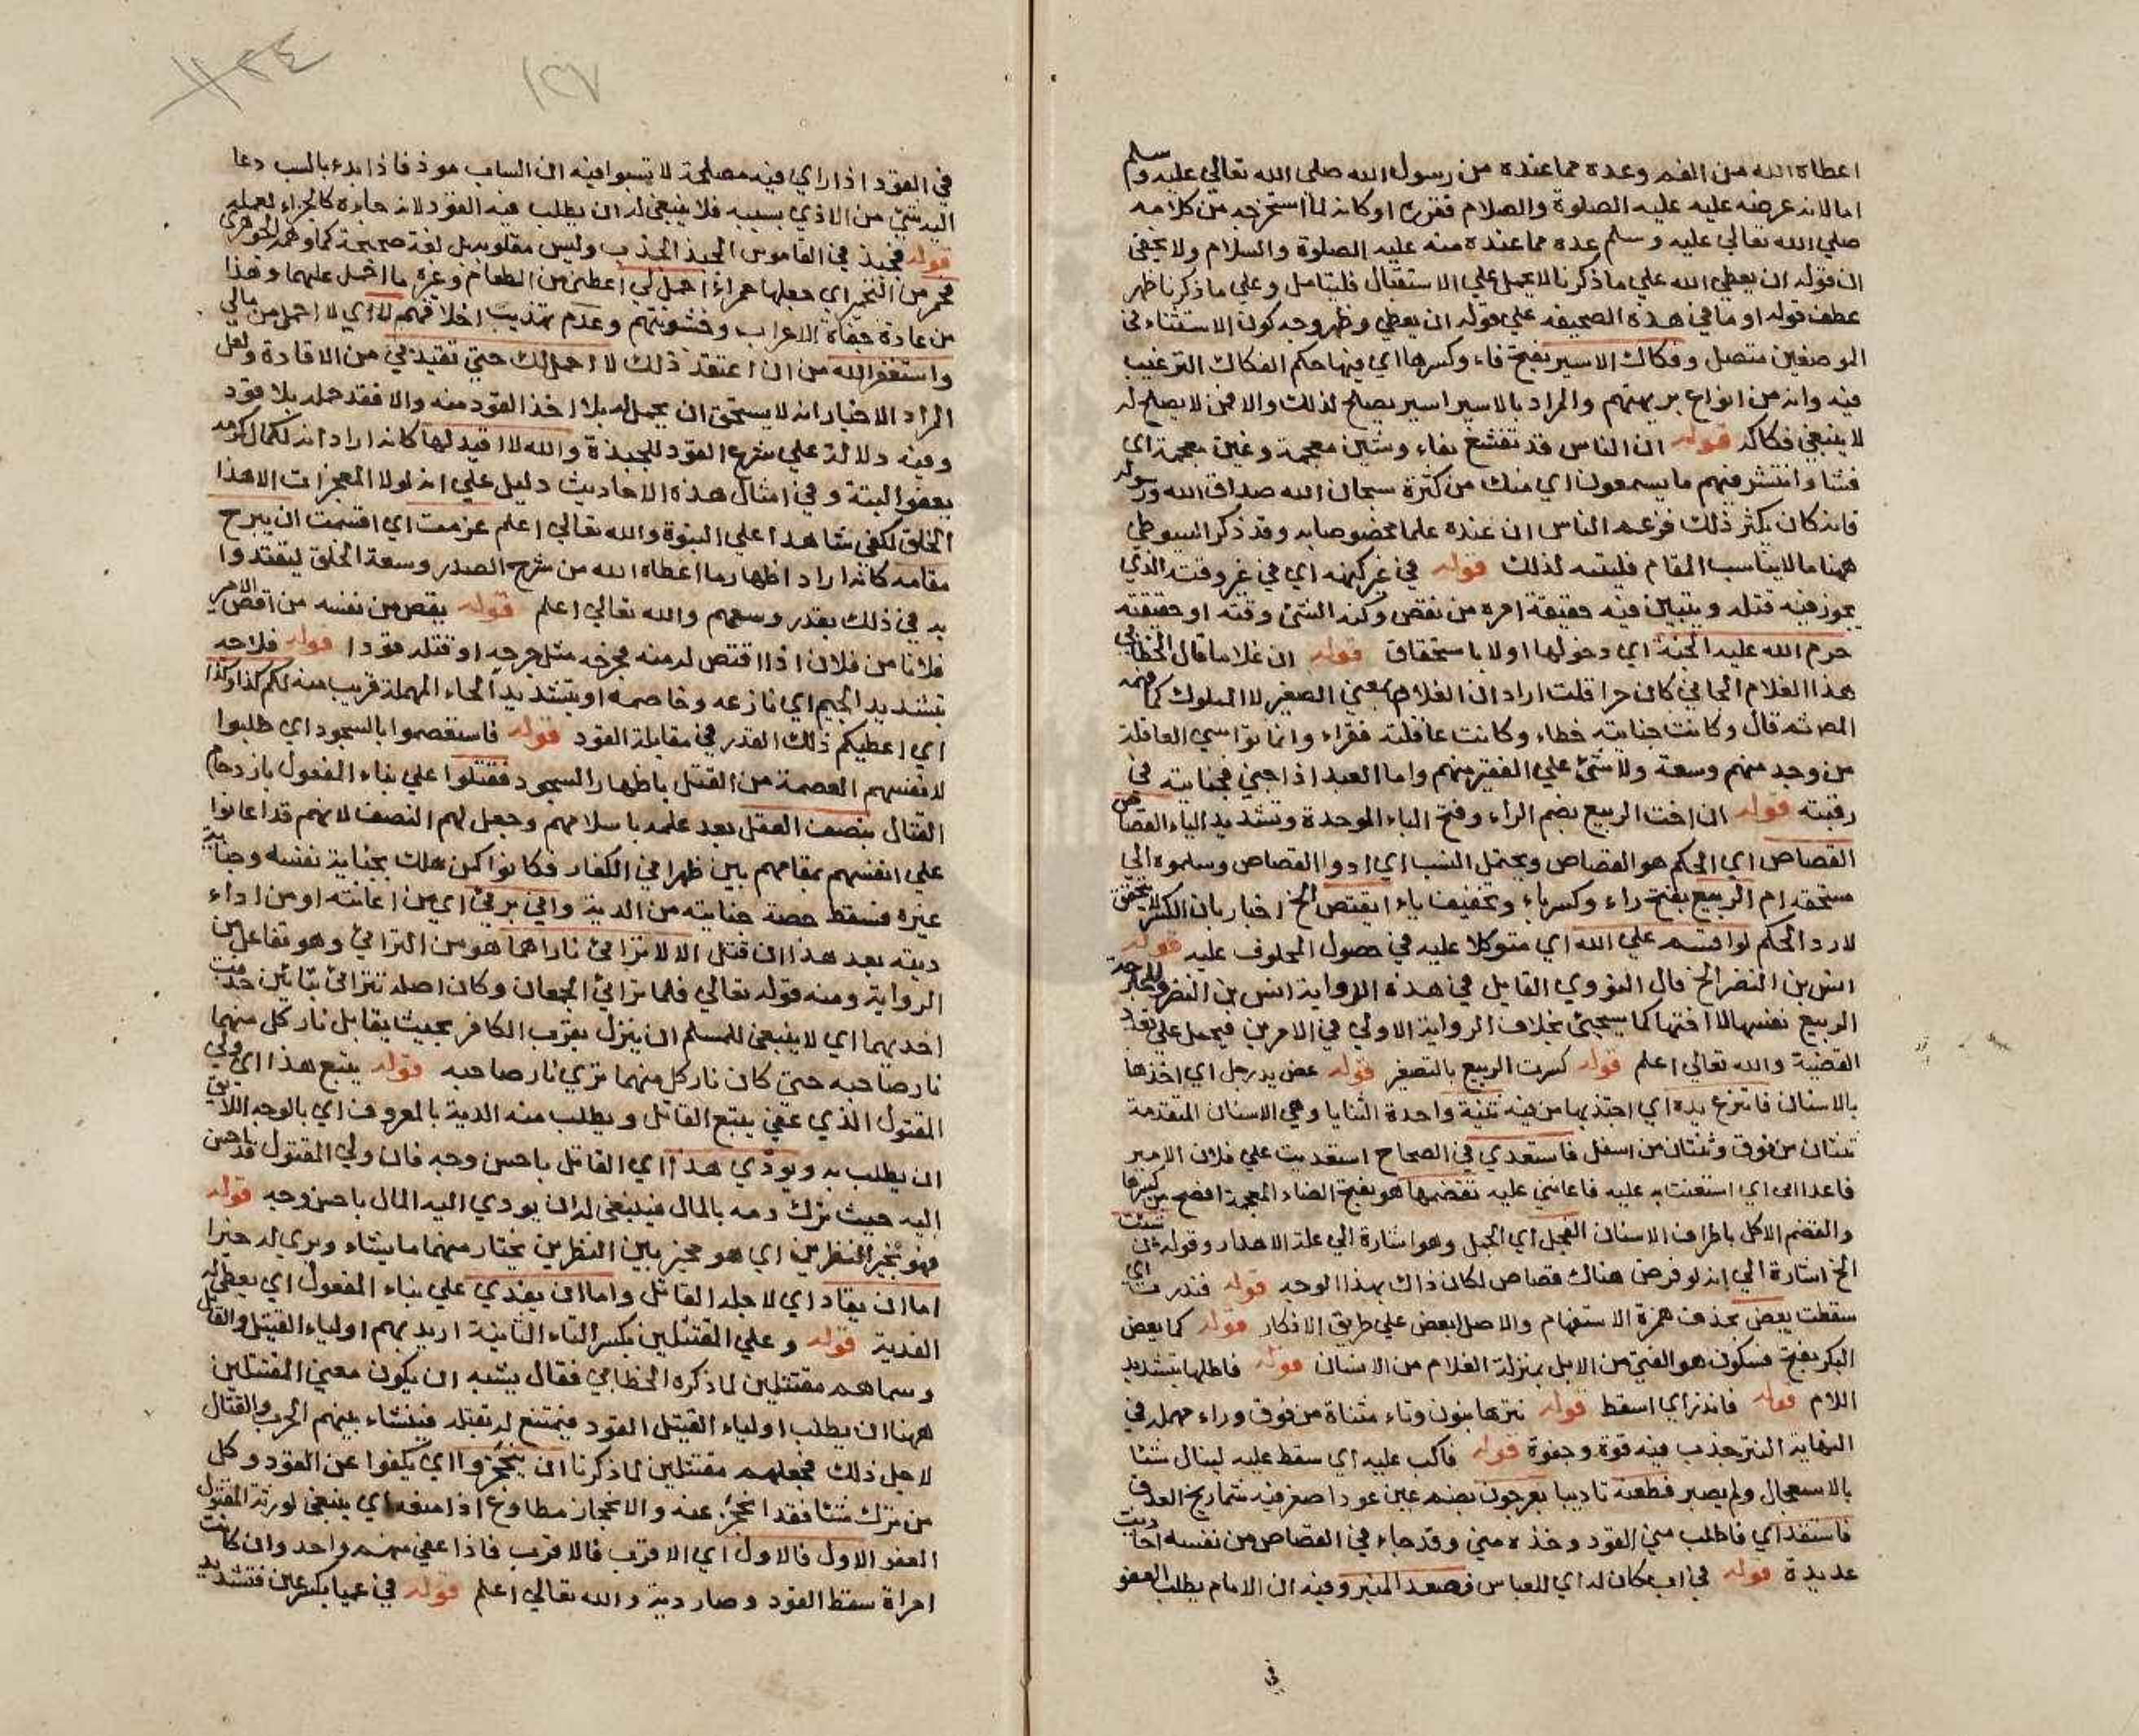 اعطاه الله من الفهم وعده مما عنده من رسول الله صلى الله تعالى عليه وسلم
اما لانه عرضه عليه عليه الصلوة والسلام فقرره او كانه لما استخرجه من كلامه
صلى الله تعالى عليه وسلم عده مما عنده منه عليه الصلوة والسلام ولا يخفى
ان قوله ان يعطي الله على ما ذكرنا لا يحمل على الاستقبال فليتامل وعلى ما ذكرنا ظهر
عطف قوله او ما في هذه الصحيفه على قوله ان يعطي وظهر وجه كون الاستثناء في
الموضعين متصل وفكاك الاسير بفتح فاء وكسرها اي فيها حكم الفكاك الترغيب
فيه وانه من انواع بر يهمهم والمراد بالاسير اسير يصلح لذلك والا فمن لا يصلح له
لا ينبغي فكاكه قوله ان الناس قد تفشغ بفاء وشين معجمة وغين معجمة اي
فشا وانتشر فيهم ما يسمعون اي منك من كثرة سبحان الله صداق الله ورسوله
فانه كان يكثر ذلك فزعم الناس ان عنده علما مخصوصا به وقد ذكر السيوطي
ههنا ما لا يناسب المقام فليتنبه لذلك قوله في غير كنهه اي في غير وقته الذي
يجوز فيه قتله ويتبين فيه حقيقة امره من نقض وكنه الشئ وقته او حقيقته
حرم الله عليه الجنة اي دخولها اولا باستحقاق قوله ان غلاما قال الخطابي
هذا الغلام الجاني كان حرا قلت اراد ان الغلام بمعنى الصغير لا المملوك كما فهمه
المص ثم قال وكانت جنايته خطاء وكانت عاقلته فقراء وانما تواسي العاقلة
من وجد منهم وسعة ولا شئ على الفقير منهم واما العبد اذا جنى فجنايته في
رقبته قوله ان اخت الربيع بضم الراء وفتح الباء الموحدة وتشديد الياء القصاص
القصاص اي الحكم هو القصاص ويحتمل النصب اي ادوا القصاص وسلموه الى
مستحقه ام الربيع بفتح راء وكسر باء وتخفيف ياء ايقتص الخ اخبار بان الكسر لا يتحقق
لا رد الحكم لو اقسم على الله اي متوكلا عليه في حصول المحلوف عليه قوله
انس بن النضر الخ قال النووي القايل في هذه الرواية انس بن النضر والجارحة
الربيع نفسها لا اختها كما سيجئ بخلاف الرواية الاولى في الامرين فيحمل على تعدد
القضية والله تعالى اعلم قوله كسرت الربيع بالتصغير قوله عض يد رجل اي اخذها
بالاسنان فانتزع يده اي اجتذبها من فيه ثنية واحدة الثنايا وهي الاسنان المتقدمة
ثنتان من فوق وثنتان من اسفل فاستعدى في الصحاح استعديت على فلان الامير
فاعداني اي استعنت به عليه فاعانني عليه تقضمها هو بفتح الضاد المعجمة افصح من كسرها
والقضم الاكل باطراف الاسنان الفحل اي الجمل وهو اشارة الى علة الاهدار وقوله ان شئت
الخ اشارة الى انه لو فرض هناك قصاص لكان ذاك بهذا الوجه قوله فندرت اي
سقطت يعض بحذف همزة الاستفهام والاصل ايعض على طريق الانكار قوله كما يعض
البكر بفتح فسكون هو الفتي من الابل بمنزلة الغلام من الانسان قوله فاطلها بتشديد
اللام قوله فاندر اي اسقط قوله نترها بنون وتاء مثناة من فوق وراء مهملة في
النهاية النتر جذب فيه قوة وجفوة قوله فاكب عليه اي سقط عليه لينال شئا
بالاستعجال ولم يصبر فطعنه تاديبا بعرجون بضم عين عود اصفر فيه شماريخ العذق
فاستقد اي فاطلب مني القود وخذه مني وقد جاء في القصاص من نفسه احاديث
عديدة قوله في اب كان له اي للعباس فصعد المنبر وفيه ان الامام يطلب العفو
في
١٢٧
في القود اذا راى فيه مصلحة لا تسبوا فيه ان الساب موذ فاذا بدء بالسب دعا
اليه شئ من الاذى بسببه فلا ينبغي له ان يطلب فيه القود لانه جاءه كالجزاء لعمله
قوله فجبذ في القاموس الجبذ الجذب وليس مقلوبه بل لغة صحيحة كما وهمه الجوهري
فحمر من التحمير اي جعلها حمراء احمل لي اعطني من الطعام وغيره ما احمل عليهما وهذا
من عادة جفاة الاعراب وخشونتهم وعدم تهذيب اخلاقهم لا اي لا احمل من مالي
واستغفر الله من ان اعتقد ذلك لا احمل لك حتى تقيدني من الاقادة ولعل
المراد الاخبار انه لا يستحق ان يحمل له بلا اخذ القود منه والا فقد حمله بلا قود
وفيه دلالة على شرع القود للجبذة والله لا اقيد لها كانه اراد انه لكمال كرمه
يعفو البتة وفي امثال هذه الاحاديث دليل على انه لولا المعجزات الا هذا
الخلق لكفى شاهدا على النبوة والله تعالى اعلم عزمت اي اقسمت ان يبرح
مقامه كانه اراد اظهار ما اعطاه الله من شرح الصدر وسعة الخلق ليقتدوا
به في ذلك بقدر وسعهم والله تعالى اعلم قوله يقص من نفسه من اقص الامير
فلانا من فلان اذا اقتص له منه فجرحه مثل جرحه او قتله قودا قوله فلاحه
بتشديد الجيم اي نازعه وخاصمه او بتشديد الحاء المهملة قريب منه لكم كذا وكذا
اي اعطيكم ذلك القدر في مقابلة القود قوله فاستعصموا بالسجود اي طلبوا
لانفسهم العصمة من القتل باظهار السجود فقتلوا على بناء المفعول بازدحام
القتال بنصف العقل بعد علمه باسلامهم وجعل لهم النصف لانهم قد اعانوا
على انفسهم بمقامهم بين ظهراني الكفار فكانوا كمن هلك بجناية نفسه وجناية
غيره فسقط حصة جنايته من الدية واني برئ اي من اعانته او من اداء
ديته بعد هذا ان قتل الا لا تراءى ناراهما هو من الترائي وهو تفاعل من
الرواية ومنه قوله تعالى فلما تراءى الجمعان وكان اصله تتراءى بتائين حذفت
احديهما اي لا ينبغي للمسلم ان ينزل بقرب الكافر بحيث يقابل نار كل منهما
نار صاحبه حتى كان نار كل منهما ترى نار صاحبه قوله يتبع هذا اي ولي
المقتول الذي عفى يتبع القاتل ويطلب منه الدية بالمعروف اي بالوجه اللائق
ان يطلب به ويودي هذا اي القاتل باحسن وجه فان ولي المقتول قد احسن
اليه حيث ترك دمه بالمال فينبغي له ان يودي اليه المال باحسن وجه قوله
فهو بخير النظرين اي هو مخير بين النظرين يختار منهما ما يشاء ويرى له خيرا
اما ان يقاد اي لاجله القاتل واما ان يفدي على بناء المفعول اي يعطى له
الفدية قوله وعلى المقتتلين بكسر التاء الثانية اريد بهم اولياء القتيل والقاتل
وسماهم مقتتلين لما ذكره الخطابي فقال يشبه ان يكون معنى المقتتلين
ههنا ان يطلب اولياء القتيل القود فيمتنع له قتله فينشاء بينهم الحرب والقتال
لاجل ذلك فجعلهم مقتتلين لما ذكرنا ان ينحجزوا اي يكفوا عن القود وكل
من ترك شئا فقد انحجز عنه والانحجاز مطاوع اذا منعه اي ينبغي لورثة المقتول
العفو الاول فالاول اي الاقرب فالاقرب فاذا عفى منهم واحد وان كانت
امراة سقط القود وصار دية والله تعالى اعلم قوله في عميا بكسر عين فتشديد